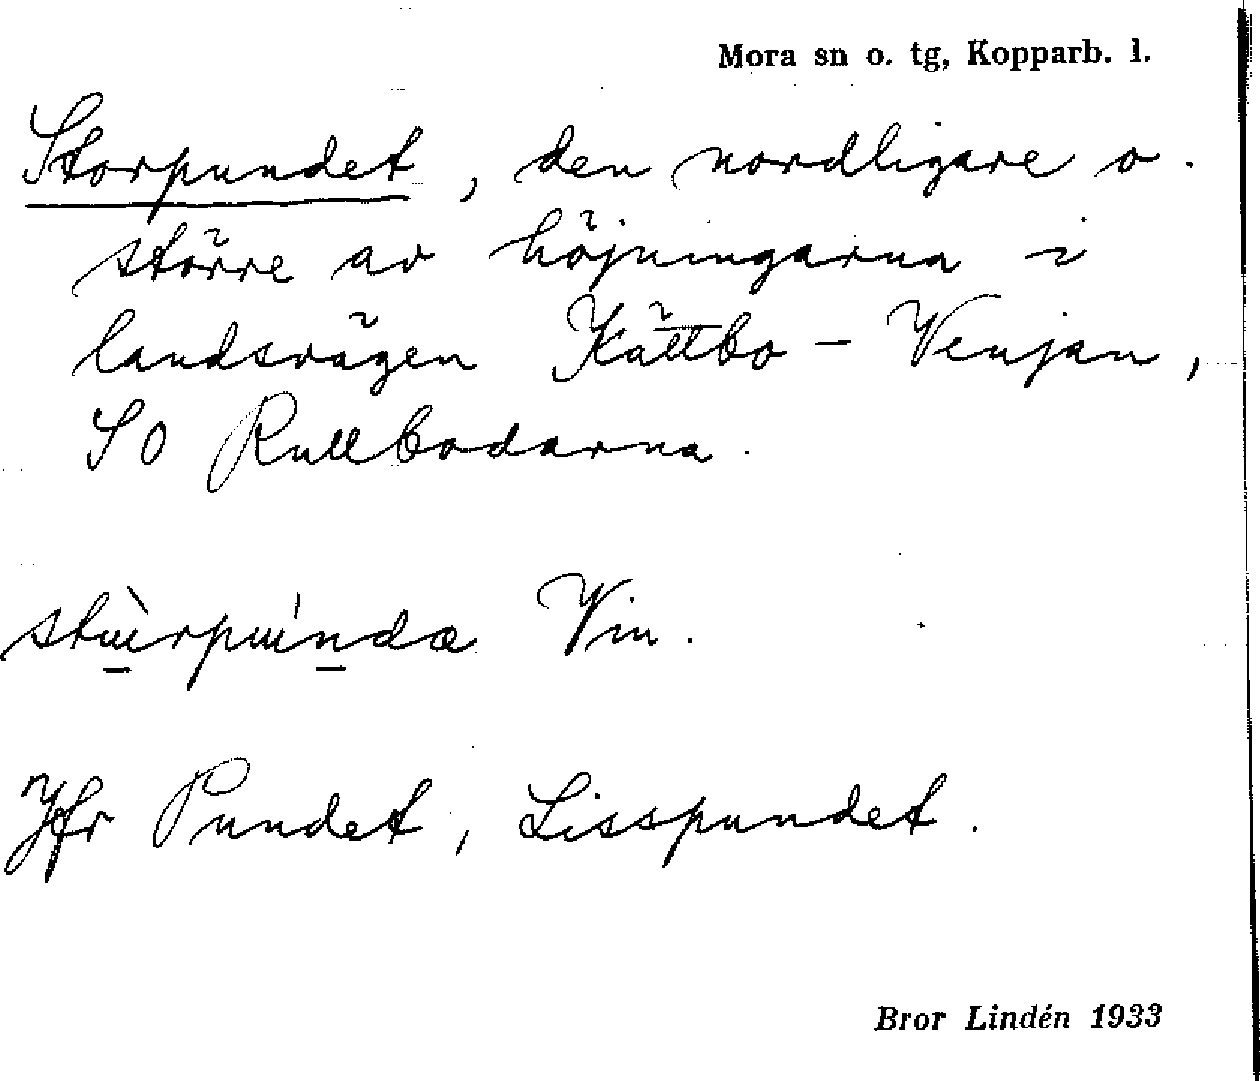 Mora sn o. tg, Kopparb. l.
Storpundet, den nordligare o.
större av höjningarna i
landsvägen Kättbo - Venjan,
SO Rullbodarna.
stùrpúndæ Vin.
Jfr Pundet, Lisspundet.
Bror Lindén 1933